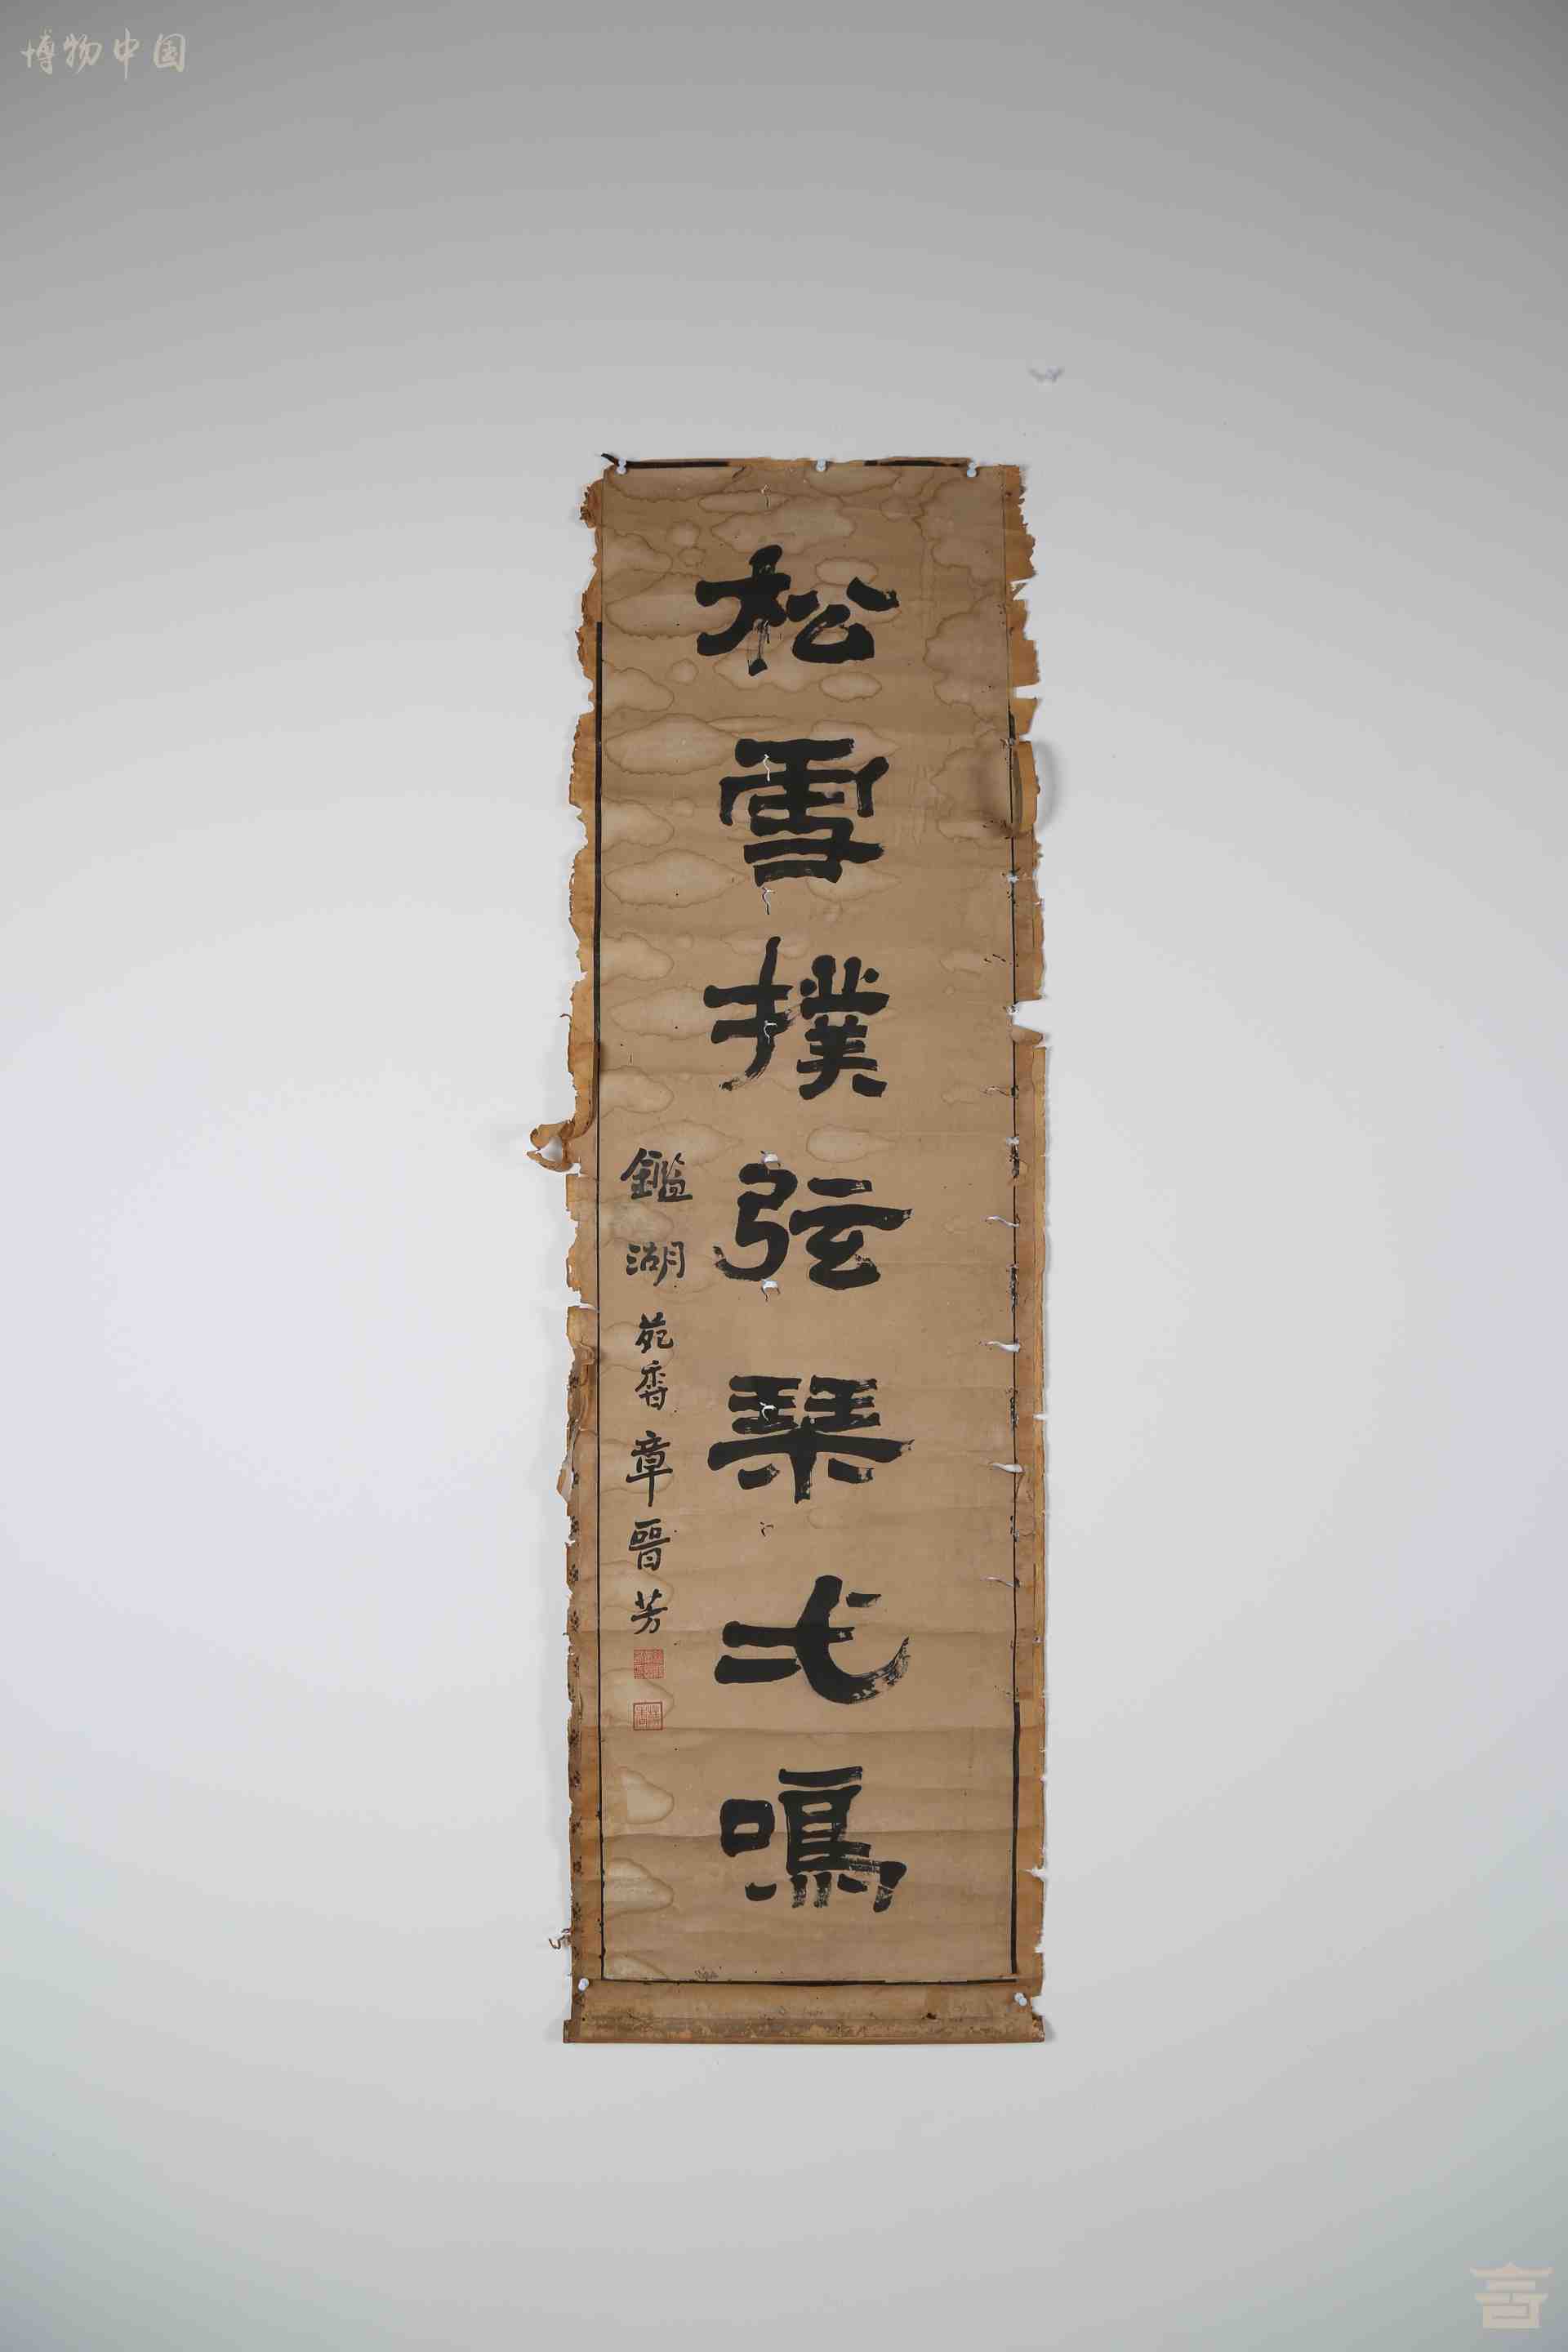 博物中国
松雪撲弦琹弌鳴
鑑湖苑香章晉芳